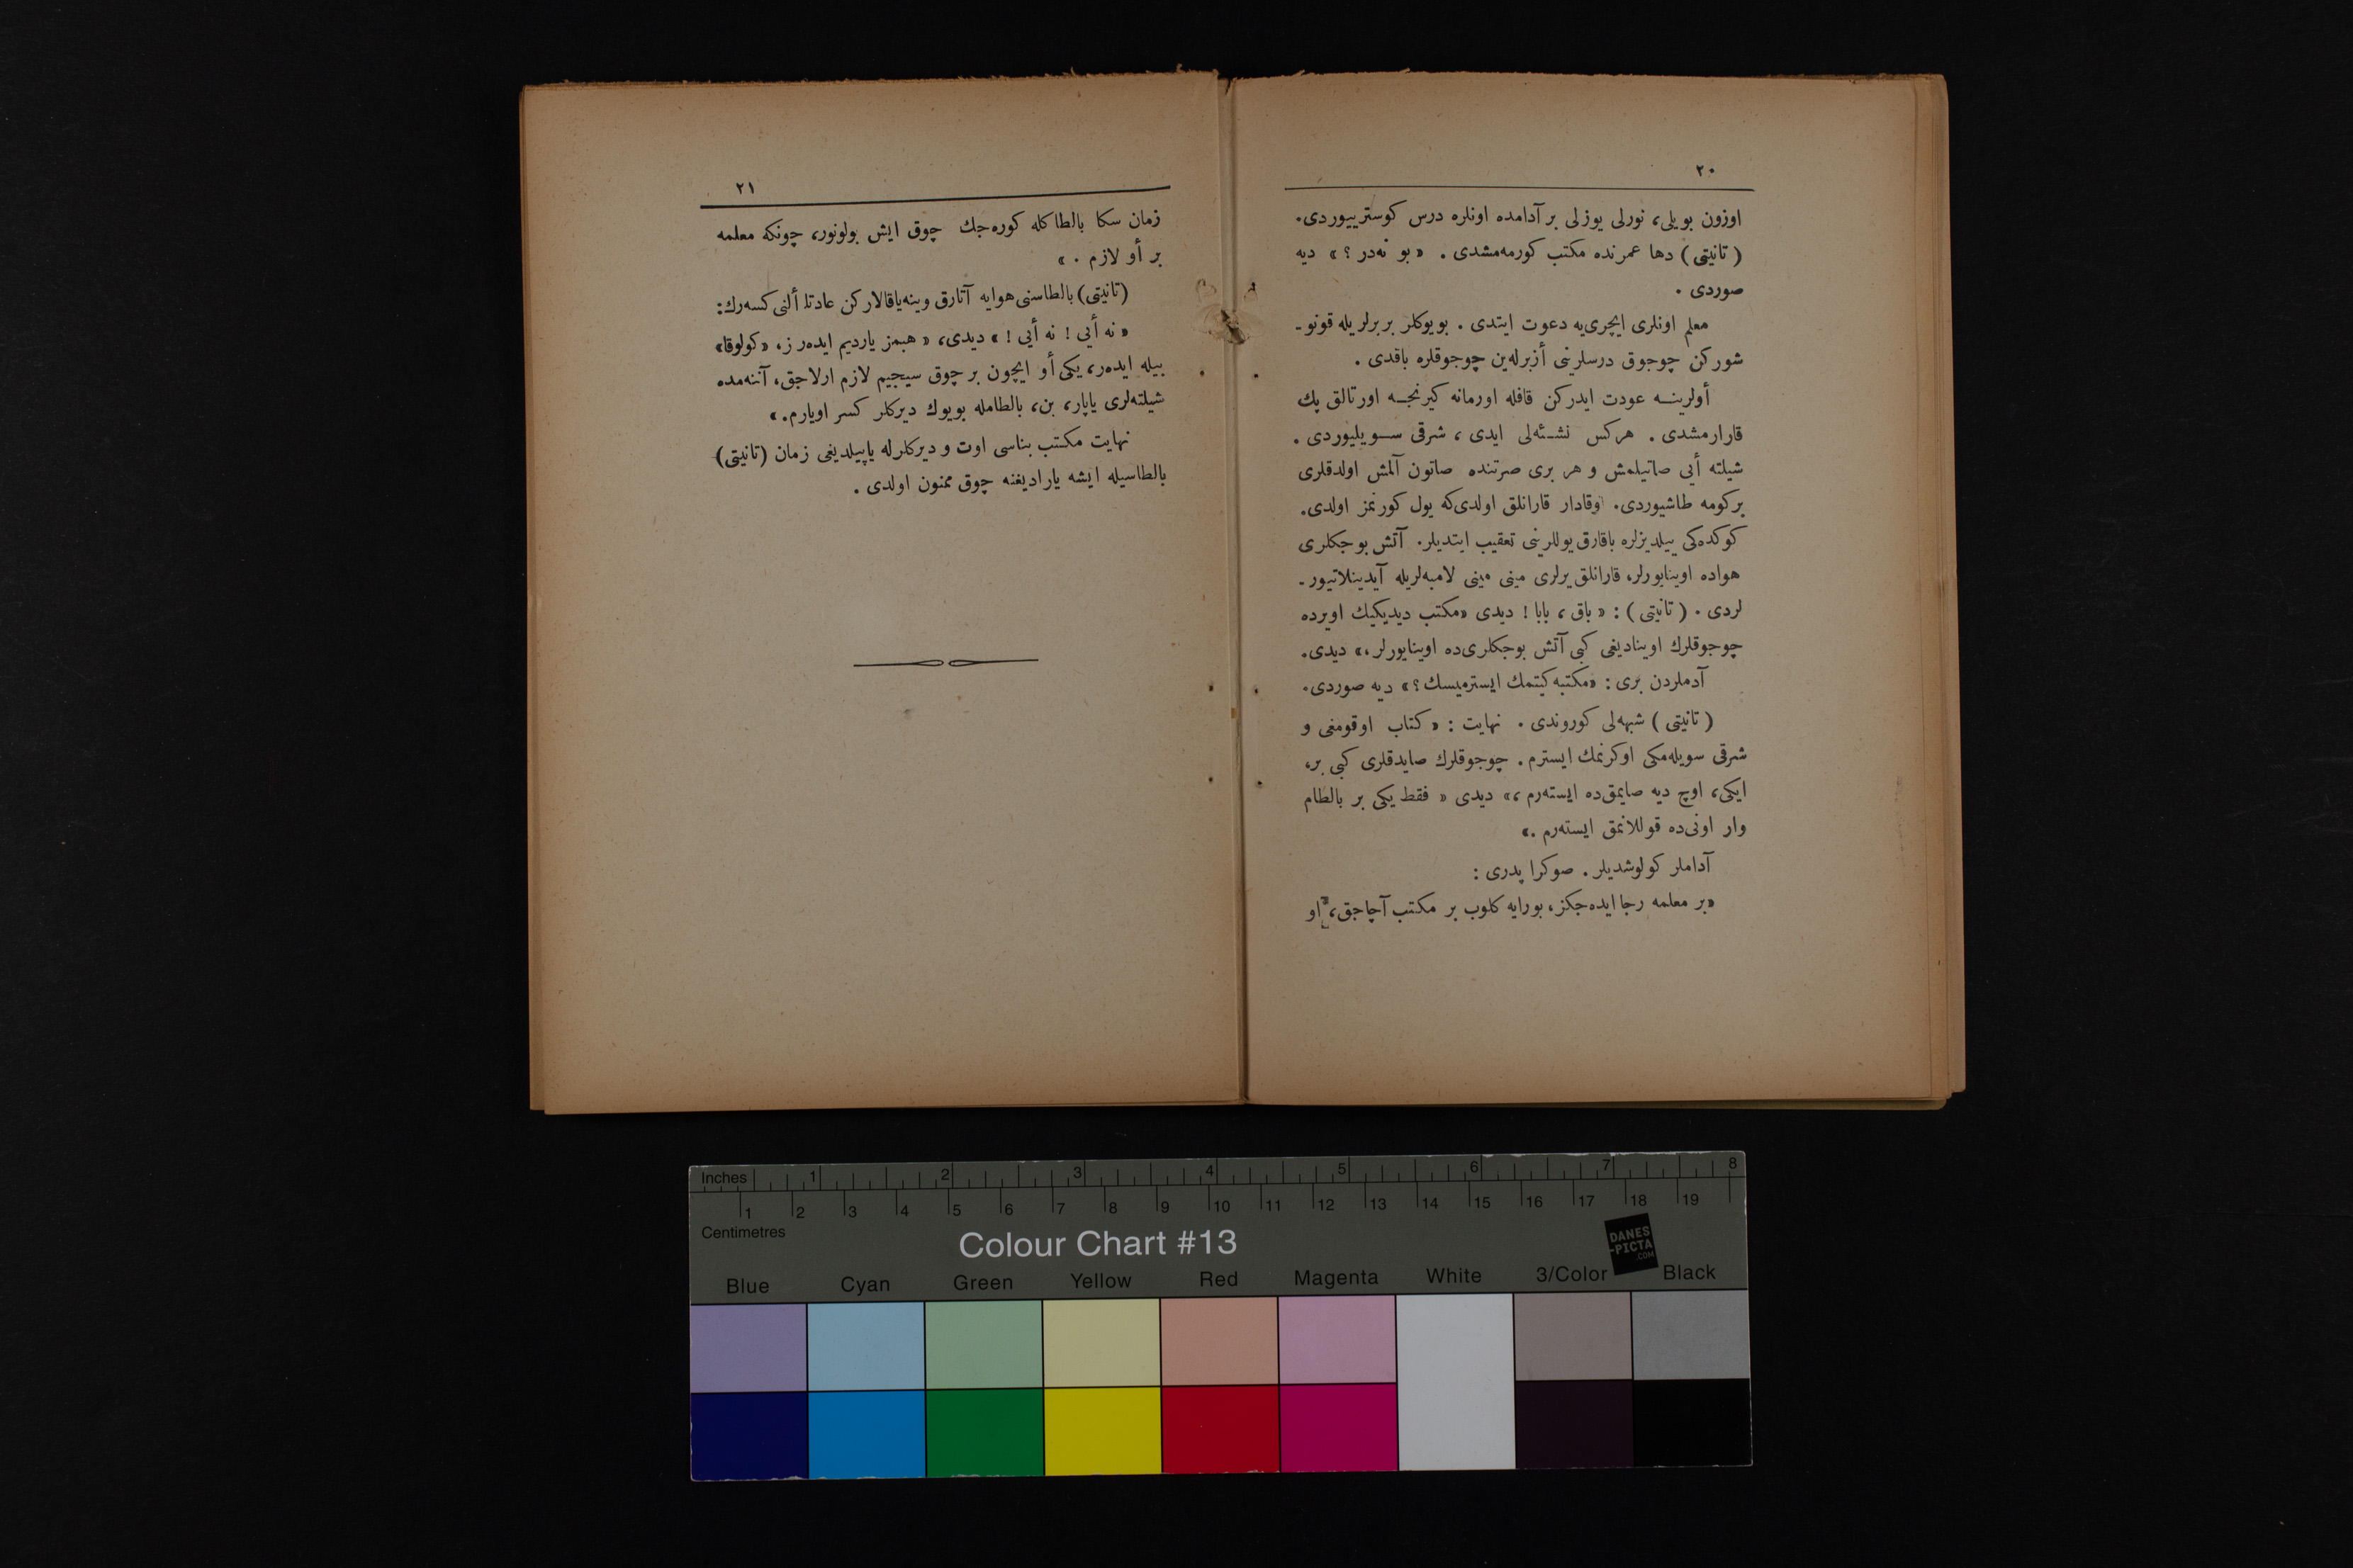 ٢٠
اوزون بویلی، نورلی یوزلی بر آدامده اونلره درس كوسترییوردی.
(تانیتی) دها عمرنده مكتب كورمه‌مشدی. «بو نه‌در؟» دیه
صوردی.
معلم اونلری ایچری‌یه دعوت ایتدی. بویوكلر بربرلریله قونو-
شوركن چوجوق درسلرینی أزبرله‌ین چوجوقلره باقدی.
أولرینـــه عودت ایدركن قافله اورمانه كیرنجـــه اورتالق پك
قارارمشدی. هركس نشـئه‌لی ایدی، شرقی ســـویلیوردی.
شیلته أیی صاتیلمش و هر بری صرتنده صاتون آلمش اولدقلری
بركومه طاشیوردی. اوقادار قارانلق اولدی‌كه یول كورنمز اولدی.
كوكده‌كی ییلدیزلره باقارق یوللرینی تعقیب ایتدیلر. آتش بوجكلری
هواده اوینایورلر، قارانلق یرلری مینی مینی لامبه‌لریله آیدینلاتیور-
لردی. (تانیتی): «باق، بابا! دیدی «مكتب دیدیكیك اویرده
چوجوقلرك اوینادیغی كبی آتش بوجكلری‌ده اوینایورلر،» دیدی.
آدملردن بری: «مكتبه كیتمك ایسترمیسك؟» دیه صوردی.
(تانیتی) شبهه‌لی كوروندی. نهایت: «كتاب اوقومغی و
شرقی سویله‌مكی اوكرنمك ایسترم. چوجوقلرك صایدقلری كبی بر،
ایكی، اوچ دیه صایمق‌ده ایسته‌رم،» دیدی «فقط یكی بر بالطام
وار اونی‌ده قوللانمق ایسته‌رم.»
آداملر كولوشدیلر. صوكرا پدری:
«بر معلمه رجا ایده‌جكز، بورایه كلوب بر مكتب آچاجق، او
٢١
زمان سكا بالطاكله كوره‌جك چوق ایش بولونور، چونكه معلمه
بر أو لازم.»
(تانیتی) بالطاسنی هوایه آتارق وینه یاقالاركن عادتا ألنی كسه‌رك:
«نه أیی! نه أیی!» دیدی، «هبمز یاردیم ایده‌رز، «كولوقا»
بیله ایده‌ر، یكی أو ایچون بر چوق سیجیم لازم ارلاجق، آننه‌مده
شیلته‌لری یاپار، بن، بالطامله بویوك دیركلر كسر اویارم.»
نهایت مكتب بناسی اوت و دیركلرله یاپیلدیغی زمان (تانیتی)
بالطاسیله ایشه یارادیغنه چوق ممنون اولدی.
Inches 1 2 3 4 5 6 7 8
1 2 3 4 5 6 7 8 9 10 11 12 13 14 15 16 17 18 19
Centimetres
Colour Chart #13
DANES
-PICTA
.COM
Blue Cyan Green Yellow Red Magenta White 3/Color Black